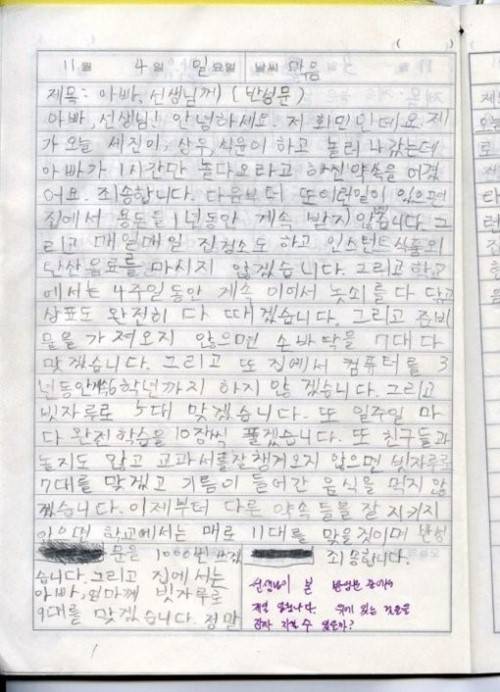 11월 4일 일요일 날씨 맑음
제목: 아빠, 선생님께) (반성문)
아빠, 선생님! 안녕하세요. 저 회민인데요. 제
가 오늘 세진이, 상우, 식운이 하고 놀러 나갔는데
아빠가 1시간만 놀다오라고 하신약속을 어겼
어요. 죄송합니다. 다음부터 또이런일이 있으면
집에서 용돈을 1년동안 계속 받지않습니다. 그
리고 매일매일 집청소도 하고 인스턴트식품외
탄산음료를 마시지 않겠습니다. 그리고 학교
에서는 4주일동안 계속 이어서 놋쇠를 다 닦고
상표도 완전히 다 따겠습니다. 그리고 준비
물을 가져오지 않으면 손바닥을 7대 다
맞겠습니다. 그리고 또 집에서 컴퓨터를 3
년동안 6학년까지 하지 않겠습니다. 그리고
빗자루로 5대 맞겠습니다. 또 일주일 마
다 완전학습을 10장씩 풀겠습니다. 또 친구들과
놀지도 않고 교과서를잘챙겨오지 않으면 빗자루로
7대를 맞겠고 기름이 들어간 음식을 먹지 않
겠습니다. 이제부터 다른 약속들을 잘 지키지
않으면 학교에서는 매로 11대를 맞을것이며 반성
문은 1000번
습니다. 그리고 집에서는
아빠, 엄마께 빗자루로
9대를 맞겠습니다. 정말
죄송합니다.
선생님이 본 반성문 중에서
제일 입니다. 여기 있는 것들을
감자 지킬 수 있는가?
1